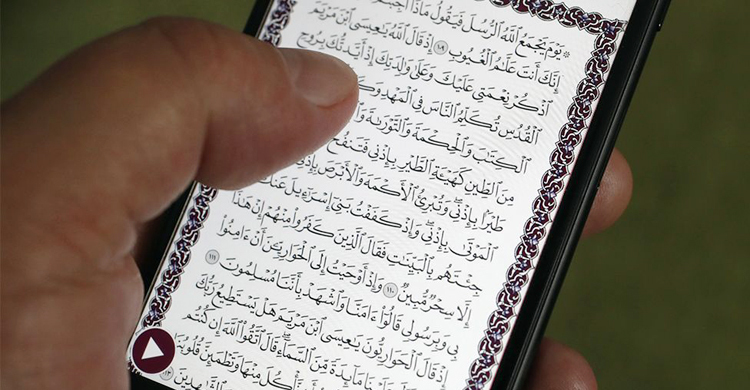 ۞ يَوْمَ يَجْمَعُ ٱللَّهُ ٱلرُّسُلَ فَيَقُولُ مَاذَآ أُجِبْتُمْ
إِنَّكَ أَنتَ عَلَّـٰمُ ٱلْغُيُوبِ ١٠٩ إِذْ قَالَ ٱللَّهُ يَـٰعِيسَى ٱبْنَ مَرْيَمَ
ٱذْكُرْ نِعْمَتِى عَلَيْكَ وَعَلَىٰ وَٰلِدَتِكَ إِذْ أَيَّدتُّكَ بِرُوحِ
ٱلْقُدُسِ تُكَلِّمُ ٱلنَّاسَ فِى ٱلْمَهْدِ
ٱلْكِتَـٰبَ وَٱلْحِكْمَةَ وَٱلتَّوْرَىٰةَ
مِنَ ٱلطِّينِ كَهَيْـَٔةِ ٱلطَّيْرِ بِإِذْنِى فَتَنفُخُ
طَيْرًۢا بِإِذْنِى وَتُبْرِئُ ٱلْأَكْمَهَ وَٱلْأَبْرَصَ بِإِذْنِى
ٱلْمَوْتَىٰ بِإِذْنِى وَإِذْ كَفَفْتُ بَنِىٓ إِسْرَٰٓءِيلَ عَنكَ
جِئْتَهُم بِٱلْبَيِّنَـٰتِ فَقَالَ ٱلَّذِينَ كَفَرُوا۟ مِنْهُمْ إِنْ هَـٰذَآ
إِلَّا سِحْرٌ مُّبِينٌ ١١٠ وَإِذْ أَوْحَيْتُ إِلَى ٱلْحَوَارِيِّـۧنَ أَنْ ءَامِنُوا۟
بِى وَبِرَسُولِى قَالُوٓا۟ ءَامَنَّا وَٱشْهَدْ بِأَنَّنَا مُسْلِمُونَ ١١١
إِذْ قَالَ ٱلْحَوَارِيُّونَ يَـٰعِيسَى ٱبْنَ مَرْيَمَ هَلْ يَسْتَطِيعُ رَبُّكَ
مَآئِدَةً مِّنَ ٱلسَّمَآءِ قَالَ ٱتَّقُوا۟ ٱللَّهَ إِن كُنتُم
نَّأْكُلَ مِنْهَا وَتَطْمَئِنَّ قُلُوبُنَا